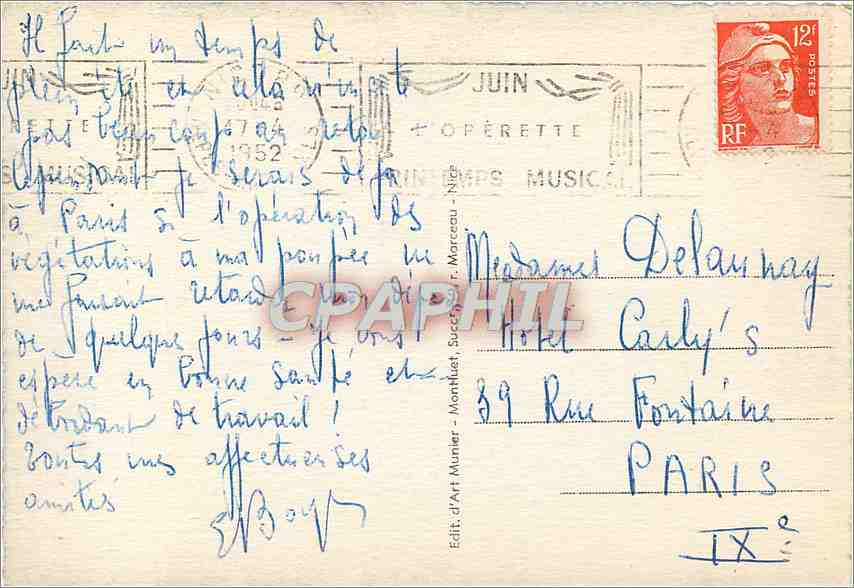 Il fait un temps de
plein été et cela n'incite
pas beaucoup au retour
cependant je serais déjà
à Paris si l'opération des
végétations à ma poupée ne
me faisait retarder mon départ
de quelques jours - je vous
espère en bonne santé et
débordant de travail !
Toutes mes affectueuses
amitiés
JUIN
L'OPÉRETTE
PRINTEMPS MUSICAL
1952
12F
POSTES
RF
Edit. d'Art Munier - MontHuet, Succr, r. Marceau - Nice
CPAPHIL
Mesdames Delaunay
Hôtel Carly's
39 Rue Fontaine
PARIS
IXe